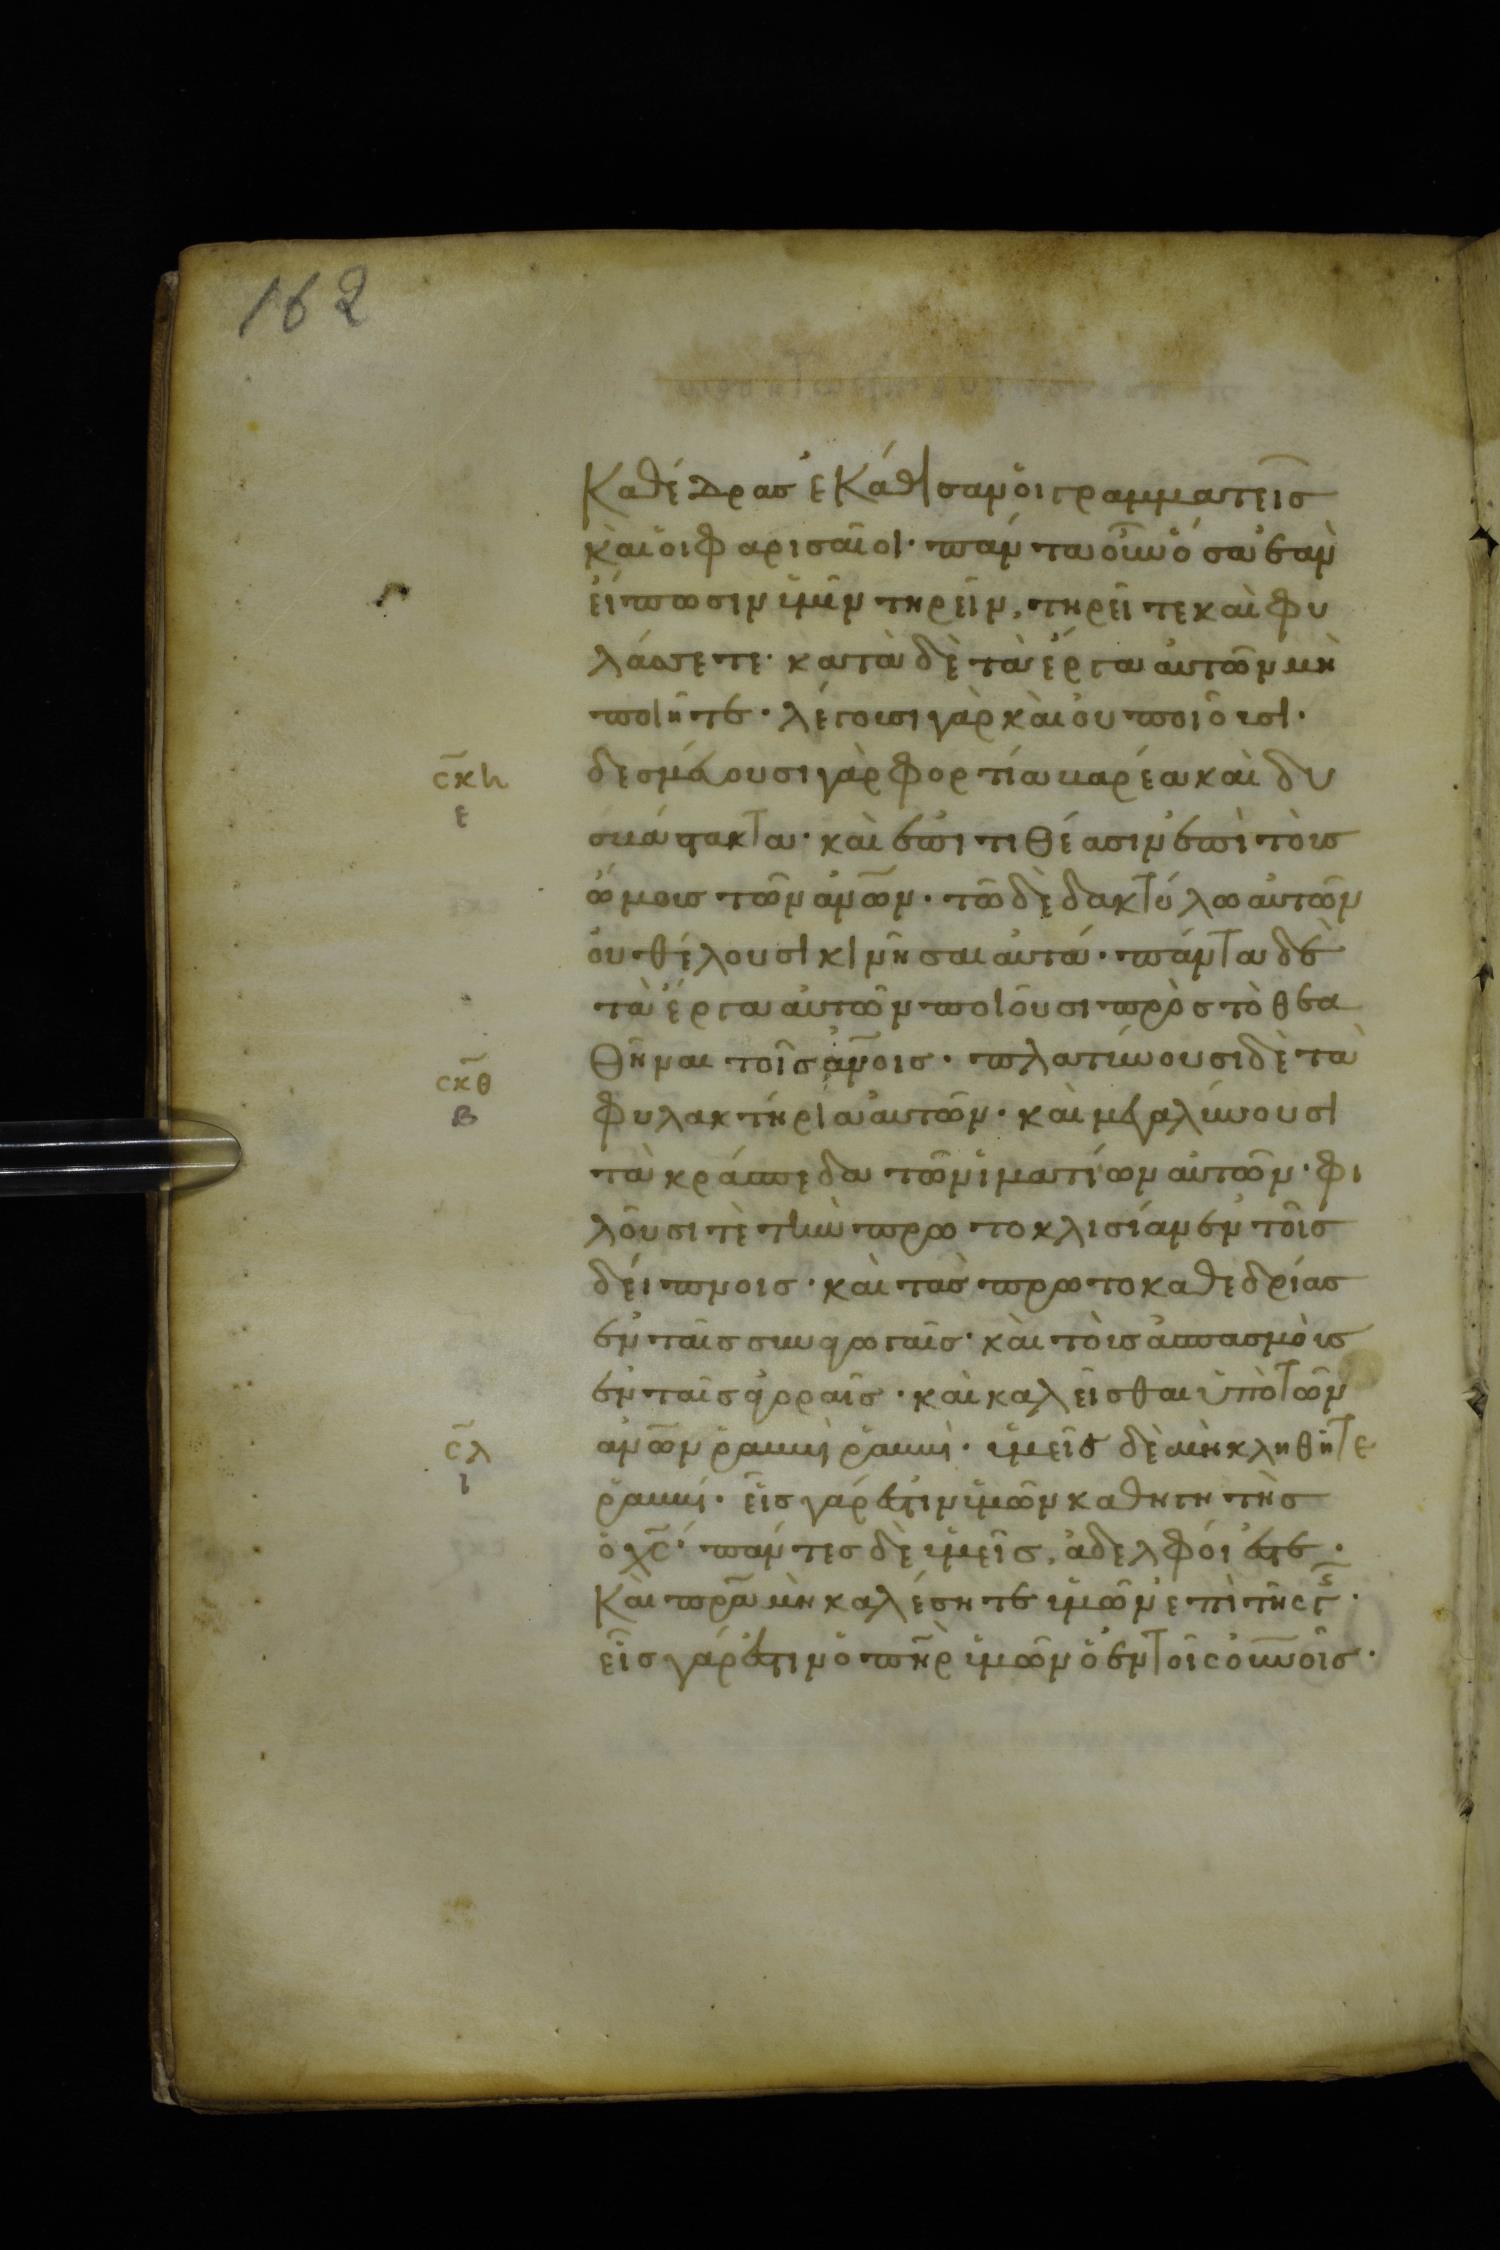 162
καθέδρας ἐκάθισαν οἱ γραμματεῖς
καὶ οἱ φαρισαῖοι· πάντα οὖν ὅσα ἐὰν
εἴπωσιν ὑμῖν τηρεῖν, τηρεῖτε καὶ φυ
λάσσετε· κατὰ δὲ τὰ ἔργα αὐτῶν μὴ
ποιῆτε· λέγουσι γὰρ καὶ οὐ ποιοῦσι·
σκη δεσμεύουσι γὰρ φορτία βαρέα καὶ δυ
ε
σβάστακτα· καὶ ἐπιτιθέασιν ἐπὶ τοῖς
ὤμοις τῶν ἀνων· τῶ δὲ δακτύλω αὐτῶν
οὐ θέλουσι κινῆσαι αὐτά· πάντα δὲ
τὰ ἔργα αὐτῶν ποιοῦσι πρὸς τὸ θεα
θῆναι τοῖς ἀνοις· πλατύνουσι δὲ τὰ
σκθ
β φυλακτήρια αὐτῶν· καὶ μεγαλύνουσι
τὰ κράσπεδα τῶν ἱματίων αὐτῶν· φι
λοῦσι τὲ τὴν πρωτοκλισίαν ἐν τοῖς
δείπνοις· καὶ τὰς πρωτοκαθεδρίας
ἐν ταῖς συναγωγαῖς· καὶ τοὺς ἀσπασμοὺς
ἐν ταῖς ἀγοραῖς· καὶ καλεῖσθαι ὑπὸ τῶν
σλ ἀνων ῥαββὶ ῥαββὶ· ὑμεῖς δὲ μὴ κληθῆτε
ι
ῥαββί· εἷς γάρ ἐστιν ὑμῶν καθηγητὴς
ὁ χς· πάντες δὲ ὑμεῖς, ἀδελφοί ἐστε·
καὶ πρα μὴ καλέσητε ὑμῶν ἐπὶ τῆς γῆς·
εἷς γάρ ἐστιν ὁ πηρ ὑμῶν ὁ ἐν τοῖς οὐνοῖς·